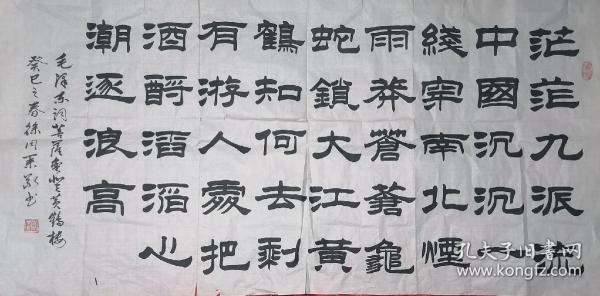 茫茫九派流
中國沉沉一
綫穿南北煙
雨莽蒼蒼龜
蛇鎖大江黃
鶴知何去剩
有游人處把
酒酹滔滔心
潮逐浪高
毛泽东词菩萨蛮登黄鹤楼
癸巳之春徐书
孔夫子旧书网
www.kongfz.com